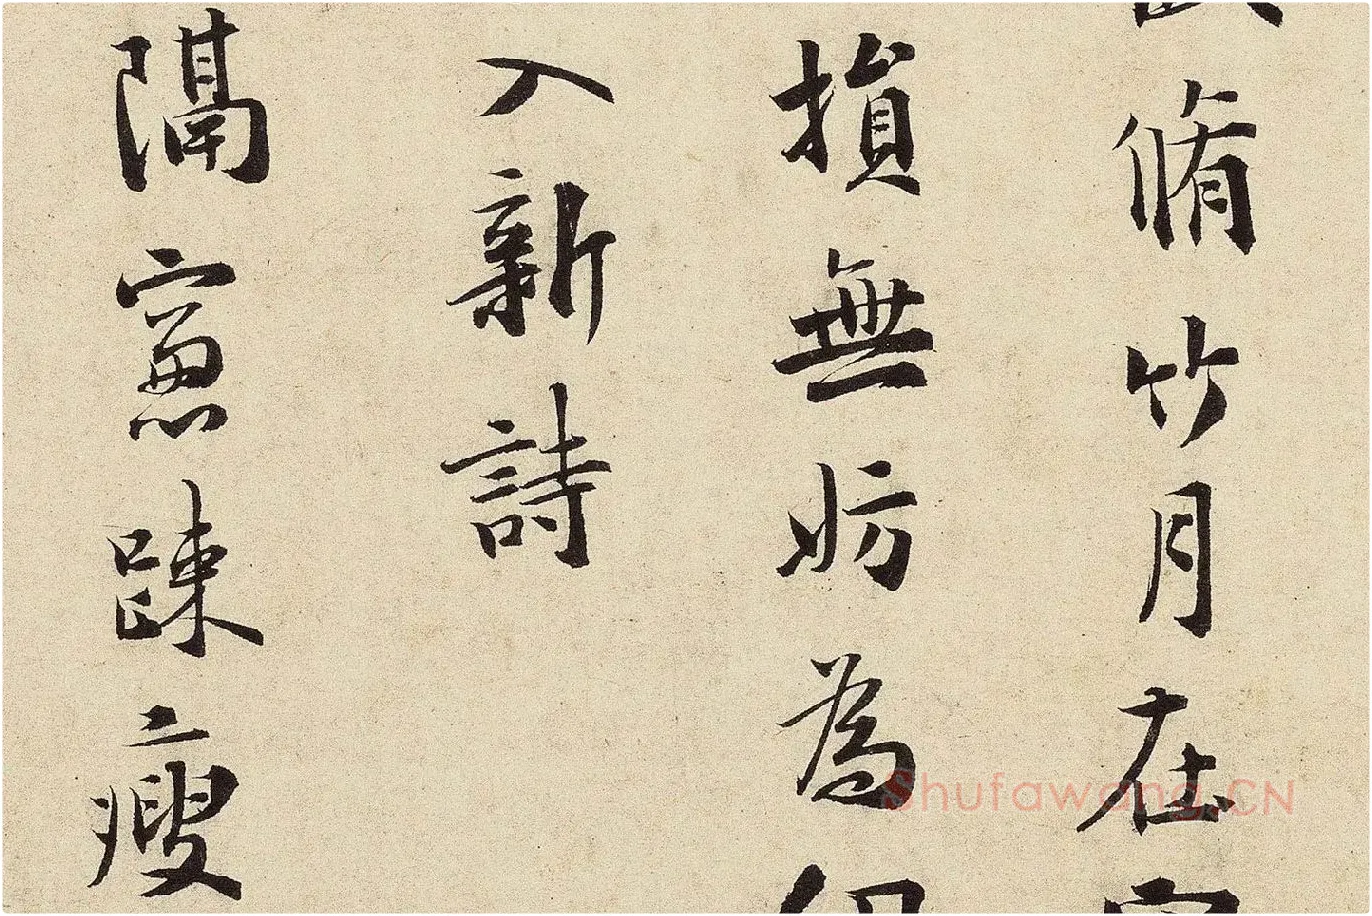 脩竹月在
損無妨為
入新詩
隔窻踈瘦
Shufawang.CN